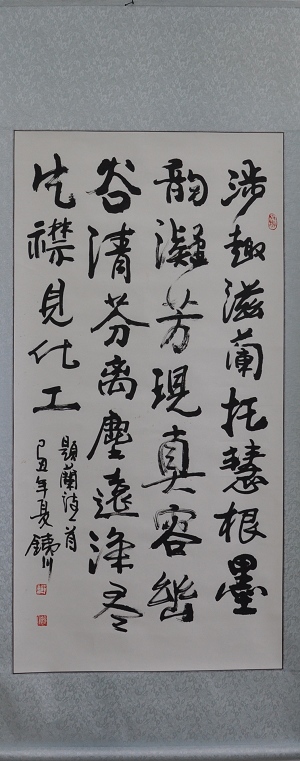 涉趣滋蘭托慧根墨
韵凝芳現真容幽
谷清芬离塵遠滌尽
凡襟見化工
題蘭诗一首
己丑年夏